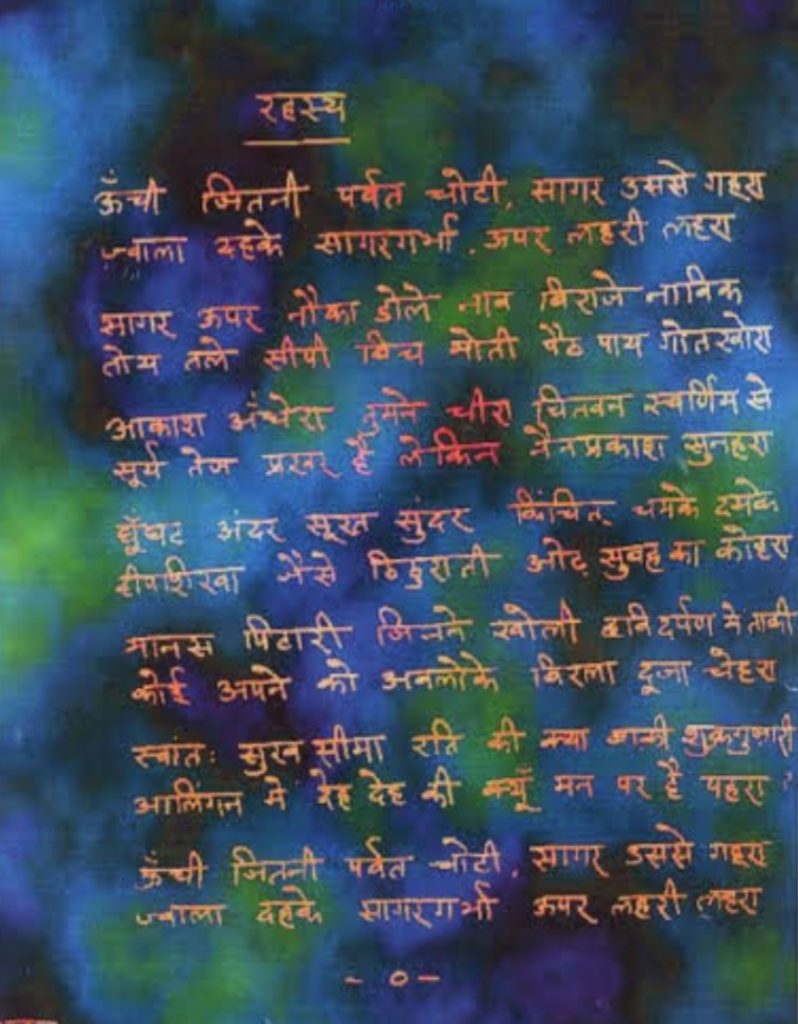 रहस्य
ऊँची जितनी पर्वत चोटी, सागर उससे गहरा
ज्वाला दहके सागरगर्भा, ऊपर लहरी लहरा
सागर ऊपर नौका डोले नाव बिराजे नाविक
तोय तले सीपी बिच मोती पैठ पाय गोतखोरा
आकाश अँधेरा तुमने चीरा चितवन स्वर्णिम से
सूर्य तेज प्रखर है लेकिन नैनप्रकाश सुनहरा
घूँघट अंदर सूरत सुंदर किंचित् चमके दमके
दीपशिखा जैसे ठिठुराती ओट सुबह का कोहरा
मानस पिटारी जिसने खोली छबि दर्पण में ताकी
कोई अपने को अवलोके बिरला दूजा चेहरा
स्वांतः सुख सीमा रति की क्या शुक्रगुजारी
आलिंगन में देह देह की क्यूँ मन पर है पहरा ?
ऊँची जितनी पर्वत चोटी, सागर उससे गहरा
ज्वाला दहके सागरगर्भा ऊपर लहरी लहरा
- ० -